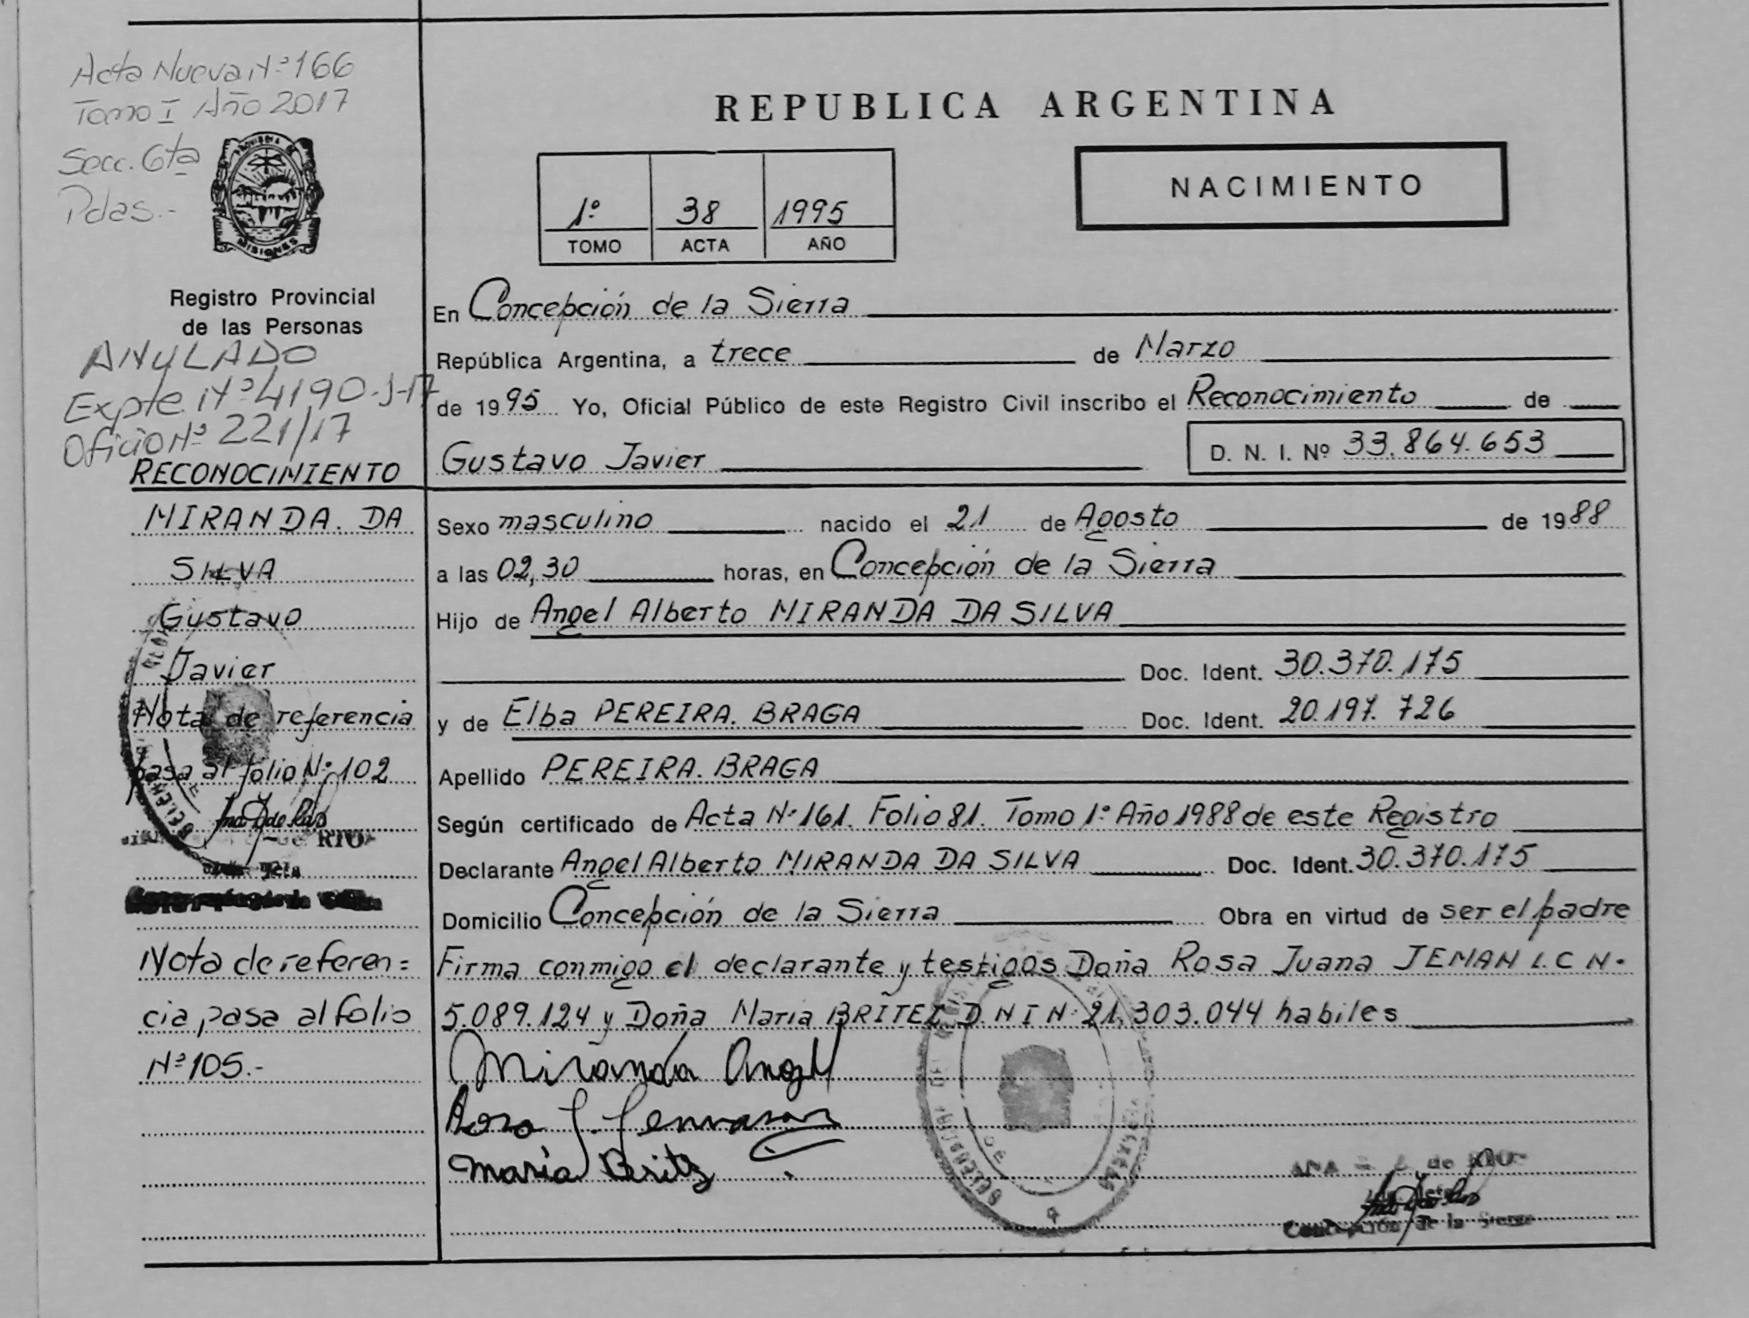 Acta Nueva Nº 166
Tomo I Año 2017
Secc. 6ta
Pdas.-
PROVINCIA DE
MISIONES
Registro Provincial
de las Personas
ANULADO
Expte. Nº 4190-J-17
Oficio Nº 221/17
RECONOCIMIENTO
MIRANDA. DA
SILVA
Gustavo
Javier
Nota de referencia
pasa al folio Nº 102
Nota de referen=
cia pasa al folio
Nº 105.-
REPUBLICA ARGENTINA
1º 38 1995
TOMO ACTA AÑO
NACIMIENTO
En Concepción de la Sierra
República Argentina, a trece de Marzo
de 1995 Yo, Oficial Público de este Registro Civil inscribo el Reconocimiento de
Gustavo Javier D. N. I. Nº 33.864.653
Sexo masculino nacido el 21 de Agosto de 1988
a las 02,30 horas, en Concepción de la Sierra
Hijo de Angel Alberto MIRANDA DA SILVA
Doc. Ident. 30.370.175
y de Elba PEREIRA. BRAGA Doc. Ident. 20.197.726
Apellido PEREIRA. BRAGA
Según certificado de Acta Nº 161. Folio 81. Tomo 1º Año 1988 de este Registro
Declarante Angel Alberto MIRANDA DA SILVA Doc. Ident. 30.370.175
Domicilio Concepción de la Sierra Obra en virtud de ser el padre
Firma conmigo el declarante y testigos Doña Rosa Juana JEMAN L.C Nº
5.089.124 y Doña Maria BRITEZ D N I Nº 21.303.044 habiles
Miranda Angel
Rosa J.
Maria Britz
ANA de RIO
Concepción de la Sierra